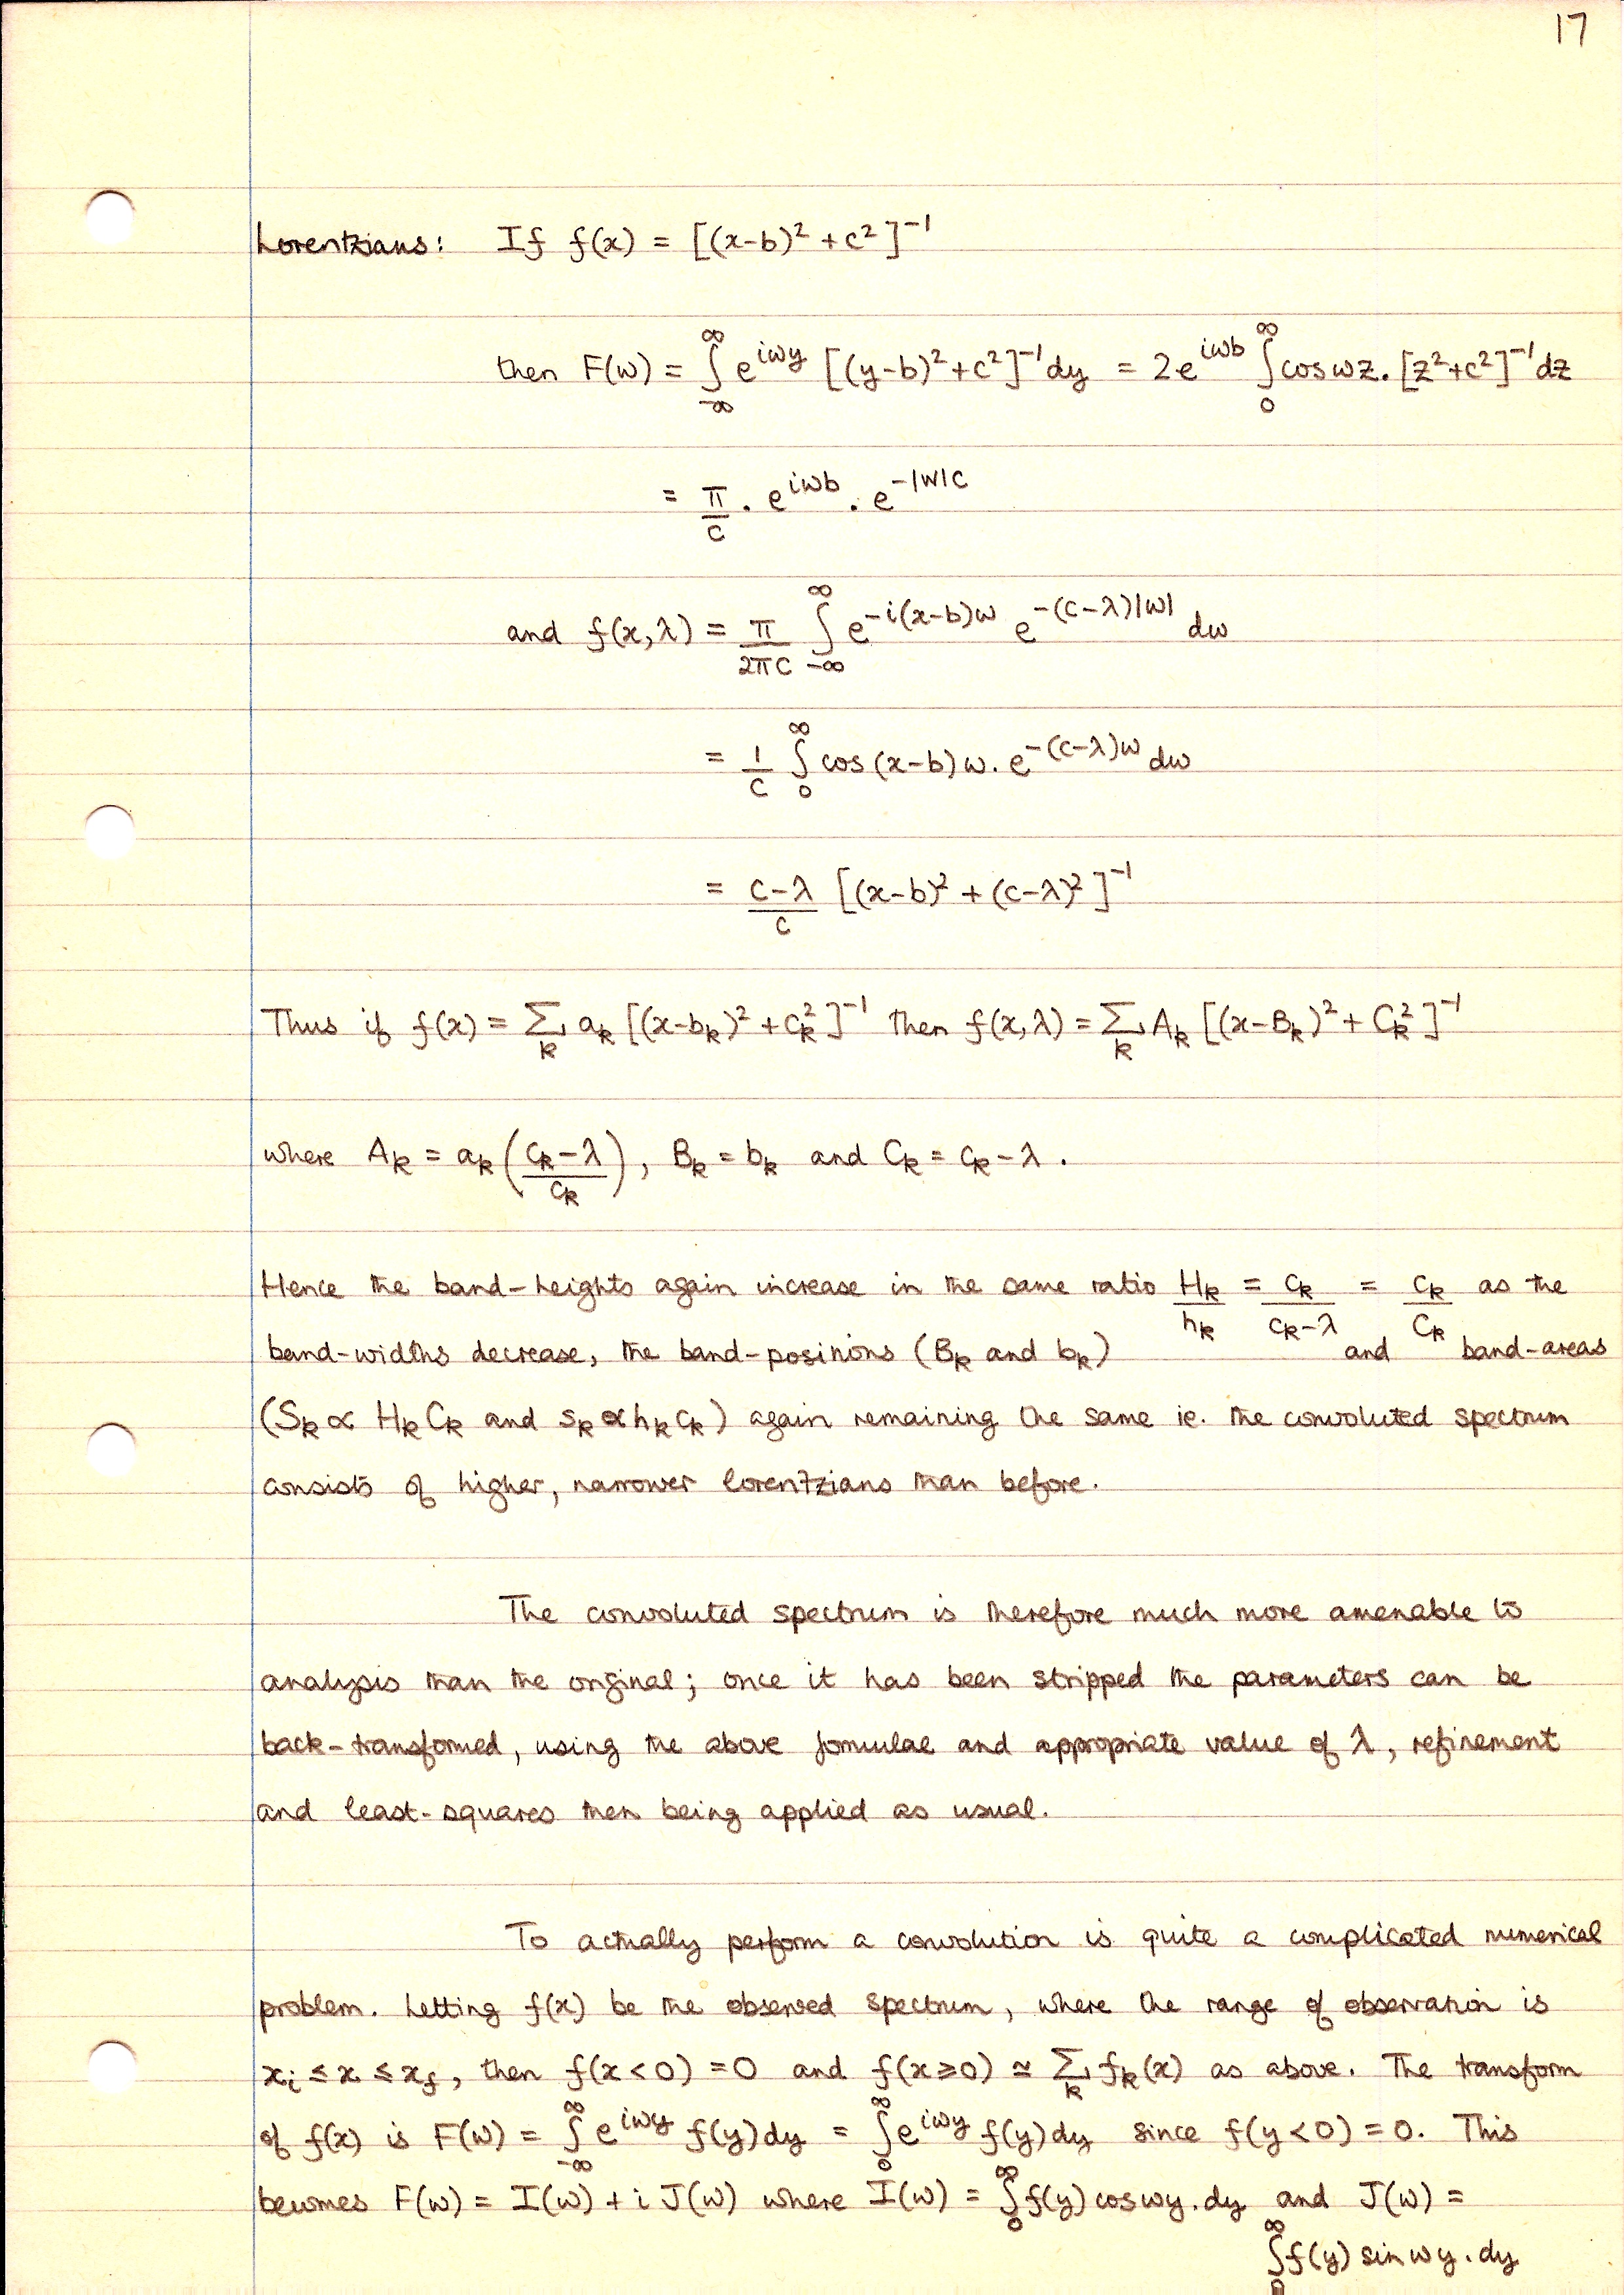 17
Lorentzians: If f(x) = [(x-b)² + c²]⁻¹
then F(ω) = ∫_{-∞}^{∞} e^{iωy} [(y-b)² + c²]⁻¹ dy = 2e^{iωb} ∫_{0}^{∞} cos ωz. [z² + c²]⁻¹ dz
= π/c . e^{iωb} . e^{-|ω|c}
and f(x,λ) = π/2πc ∫_{-∞}^{∞} e^{-i(x-b)ω} e^{-(c-λ)|ω|} dω
= 1/c ∫_{0}^{∞} cos (x-b) ω. e^{-(c-λ)ω} dω
= (c-λ)/c [(x-b)² + (c-λ)²]⁻¹
Thus if f(x) = Σ_k a_k [(x-b_k)² + c_k²]⁻¹ then f(x,λ) = Σ_k A_k [(x-B_k)² + C_k²]⁻¹
where A_k = a_k ((c_k-λ)/c_k), B_k = b_k and C_k = c_k - λ.
Hence the band-heights again increase in the same ratio H_k/h_k = c_k/(c_k-λ) = c_k/C_k as the
band-widths decrease, the band-positions (B_k and b_k) and band-areas
(S_k ∝ H_k C_k and s_k ∝ h_k c_k) again remaining the same ie. the convoluted spectrum
consists of higher, narrower lorentzians than before.
The convoluted spectrum is therefore much more amenable to
analysis than the original; once it has been stripped the parameters can be
back-transformed, using the above formulae and appropriate value of λ, refinement
and least-squares then being applied as usual.
To actually perform a convolution is quite a complicated numerical
problem. Letting f(x) be the observed spectrum, where the range of observation is
x_i ≤ x ≤ x_f, then f(x<0) = 0 and f(x≥0) ≃ Σ_k f_k(x) as above. The transform
of f(x) is F(ω) = ∫_{-∞}^{∞} e^{iωy} f(y) dy = ∫_{0}^{∞} e^{iωy} f(y) dy since f(y<0) = 0. This
becomes F(ω) = I(ω) + i J(ω) where I(ω) = ∫_{0}^{∞} f(y) cos ωy. dy and J(ω) =
∫_{0}^{∞} f(y) sin ωy. dy